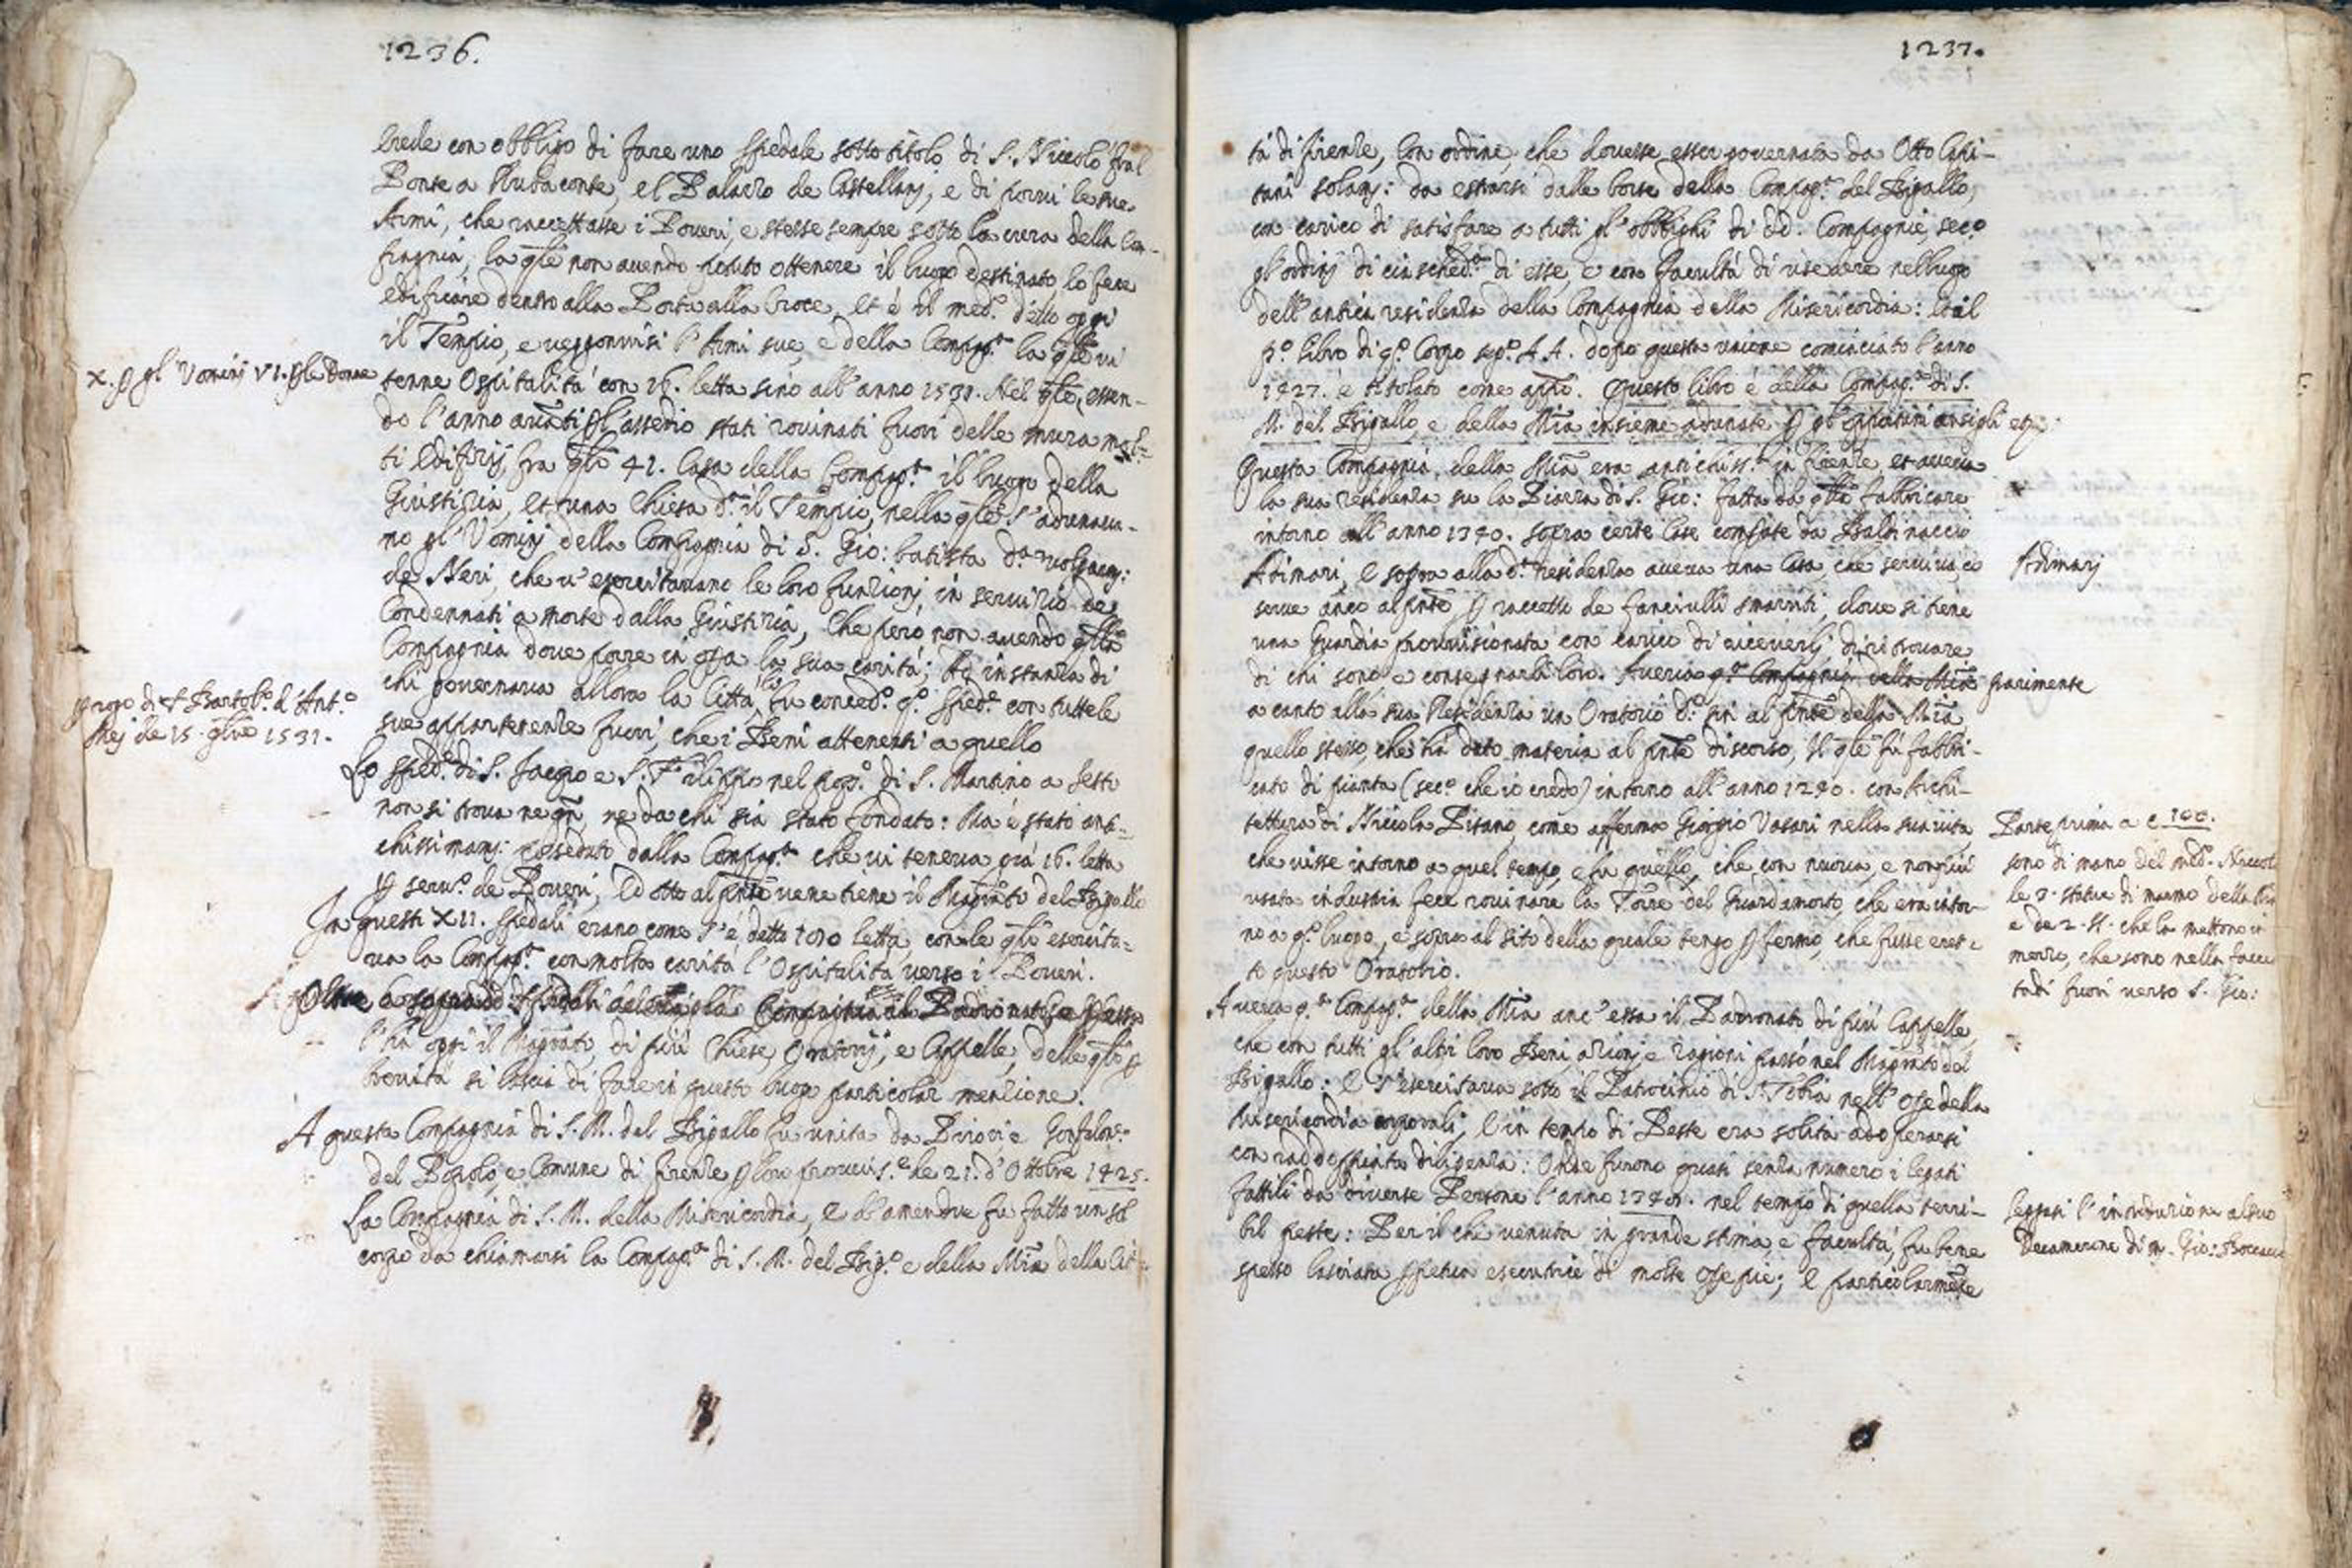 1236.
herede con obbligo di fare uno spedale sotto titolo di S. Niccolò fral
Ponte a Rubaconte, el Palazzo de Castellanj, e di porvi le sue
Armi, che raccettasse i Poveri, e stesse sempre sotto la cura della Con-
pagnia, la qle non avendo potuto ottenere il luogo destinato lo fece
edificare dentro alla Porta alla Croce, et è il med.o dello oggi
il Tempio, e veggonvisi l'Armi sue, e della Compag.a la qle vi
x. p gl' Vominj VI. p le Donne
tenne Ospitalità con 16. letta sino all'anno 1531. Nel qle, essen-
do l'anno avanti p l'assedio stati rovinati fuori delle mura mol-
ti Edifizij, fra qli 41. Casa della Compag.a il luogo della
Giustizia, et una Chiesa d.a il Tempio, nella qle s'adunava-
no gl'Vominj della Compagnia di S. Gio: batista d.a volgarm:
de Neri, che v'esercitavano le loro funzionj in servizio de
Condennati a morte dalla Giustizia, Che però non avendo qlla
Compagnia dove porre in opa la sua carità; Ad instanza di
chi governava allora la Città, fu conced.o q.o sped.e con tuttele
rogo di S Bartol.o d'Ant.o
Mej de 15. gbre 1531.
sue appartenenze fuori, che i Beni attenenti a quello
Lo sped.e di S. Jacopo e S. Filippo nel pop.o di S. Martino a Sesto
non si trova ne qn, ne da chi sia stato fondato: Ma è stato anti-
chissimam: posseduto dalla Compag.a che vi teneva già 16. letta
p serv.o de Poveri, Ed otto al pnte vene tiene il Magrato del Bigallo
In questi XII. spedali erano come s'è detto 1010 letta, conle qli esercita-
va la Compag.a con molta carità l'Ospitalità verso i Poveri.
l'hà oggi il Magrato, di più Chiese, Oratorij, e Cappelle, delle qli p
brevità si lascia di fare in questo luogo particolar menzione.
A questa Compagnia di S. M. del Bigallo fu unita da Priori e Gonfalon.e
del Popolo, e Comune di Firenze p lor provvis.e de 21. d'Ottobre 1425.
La Compagnia di S. M. della Misericordia, E d'amendue fu fatto un sol
corpo da chiamarsi la Compag.a di S. M. del Big.o e della Mia della Cit-
1237.
tà di Firenze, Con ordine, che dovesse esser governata da Otto Capi-
tani solam: da estrarsi dalle borse della Compag.a del Bigallo,
con carico di satisfare a tutti gl'obblighi di dd. Compagnie, sec.o
gl'ordinj di ciasched.a di esse, e con facultà di risedere nel luogo
dell'antica residenza della Compagnia della Misericordia: Et il
p.o libro di q.o Corpo seg.o A A. dopo questa unione cominciato l'anno
1427. è titolato come app.o. Questo libro è della Compag.a di S.
M. del Bigallo, e della Mia insieme adunate p gl'opportuni consigli etc:
Questa Compagnia della Mia era antichiss.a in Firenze, et aveva
la sua residenza su la Piazza di S. Gio: fatta da qlla fabbricare
intorno all'anno 1340. sopra certe Case comprate da Baldinaccio
Adimari, E sopra alla d.a Residenza aveva una Casa, che serviva, e
Adimarj
serve anco al pnte p raccetto de fanciulli smarriti, dove si tiene
una Guardia provvisionata con carico di riceverli, di ritrovare
di chi sono e consegnarli loro. Aveva q.a Compagnia della Mia parimente
a canto alla sua Residenza un Oratorio d.o sin al pnte della Mia
quello stesso, che hà dato materia al pnte discorso, Il qle fu fabbri-
cato di pianta (sec.o che io credo) intorno all'anno 1290. con Archi-
tettura di Niccola Pisano, come afferma Giorgio Vasari nella sua vita
Parte prima a c 100.
che visse intorno a quel tempo, e fu quello, che con nuova, e non più
sono di mano del md.o Niccola
le 3. statue di marmo della
usata industria fece rovinare la Torre del Guardamorto, che era intor-
e de 2. S. che la mettono in
no a q.o luogo, e sopra al sito della quale tengo p fermo, che fusse eret-
mezzo, che sono nella faccia
to questo Oratorio.
tadi fuori verso S. Gio:
Aveva q.a Compag.a della Mia anc'essa il Padronato di più Cappelle,
che con tutti gl'altri loro Beni, azionj, e ragioni passò nel Magrato del
Bigallo: E s'esercitava sotto il Patrocinio di S. Tobia nell'Ope della
Misericordia corporali, E in tempo di Peste era solita adoperarsi
con raddoppiata diligenza: Onde furono quasi senza numero i legati
fattili da diverse Persone l'anno 1348. nel tempo di quella terri-
leggasi l'introduzione al suo
bil peste: Per il che venuta in grande stima, e facultà, fu bene
Decamerone di m. Gio: Boccacci
spesso lasciata esecutrice di molte Ope pie; E particolarmente